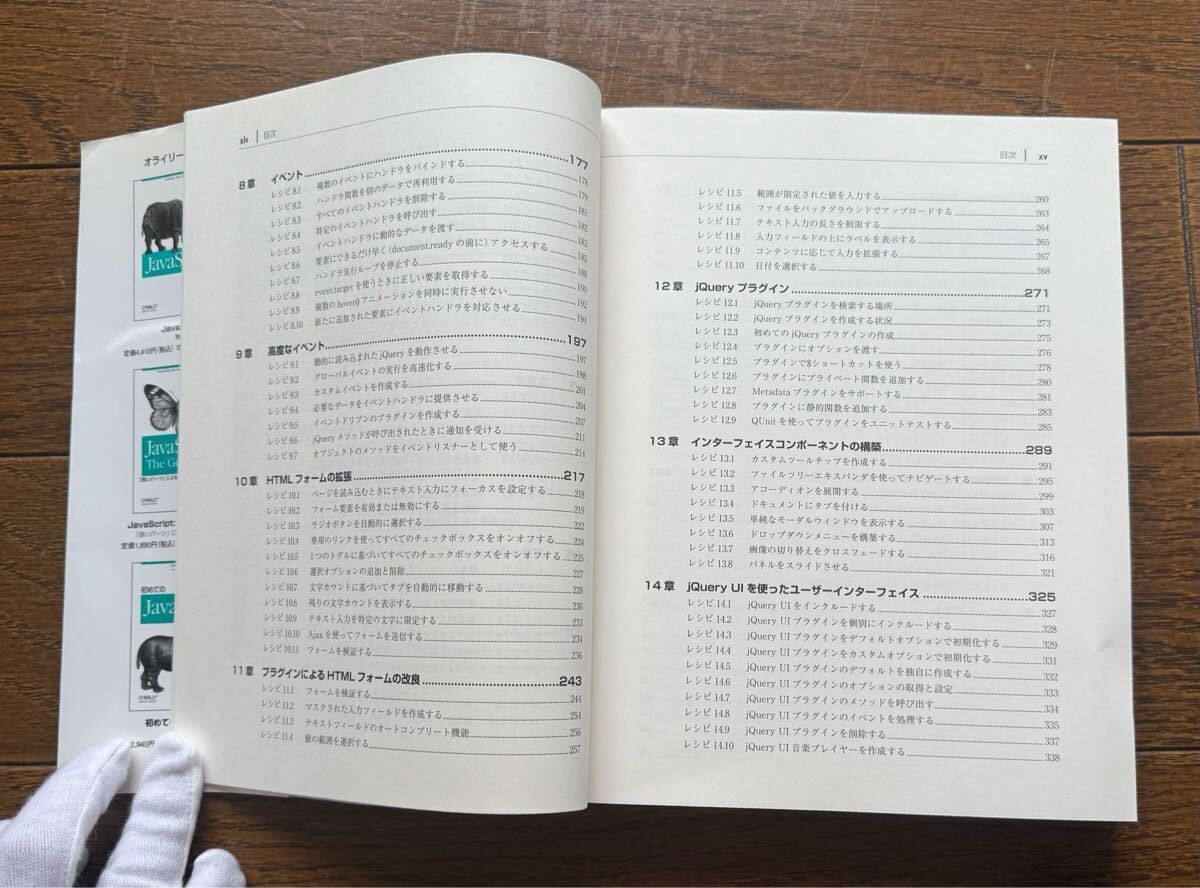 オライリー
JavaS
O'REILLY
Java
定価4,410円(税込)
JavaS
The Go
O'REILLY
JavaScript:
「良いパーツ」に
定価1,890円(税込)
初めての
Java
O'REILLY
初めての
2,940円
xiv 目次
8章 イベント 177
レシピ 8.1 複数のイベントにハンドラをバインドする 178
レシピ 8.2 ハンドラ関数を別のデータで再利用する 179
レシピ 8.3 すべてのイベントハンドラを削除する 181
レシピ 8.4 特定のイベントハンドラを呼び出す 182
レシピ 8.5 イベントハンドラに動的なデータを渡す 183
レシピ 8.6 要素にできるだけ早く(document.ready の前に)アクセスする 185
レシピ 8.7 ハンドラ実行ループを停止する 188
レシピ 8.8 event.target を使うときに正しい要素を取得する 190
レシピ 8.9 複数の hover() アニメーションを同時に実行させない 192
レシピ 8.10 新たに追加された要素にイベントハンドラを対応させる 194
9章 高度なイベント 197
レシピ 9.1 動的に読み込まれた jQuery を動作させる 197
レシピ 9.2 グローバルイベントの実行を高速化する 198
レシピ 9.3 カスタムイベントを作成する 201
レシピ 9.4 必要なデータをイベントハンドラに提供させる 204
レシピ 9.5 イベントドリブンのプラグインを作成する 207
レシピ 9.6 jQuery メソッドが呼び出されたときに通知を受ける 211
レシピ 9.7 オブジェクトのメソッドをイベントリスナーとして使う 214
10章 HTML フォームの拡張 217
レシピ 10.1 ページを読み込むときにテキスト入力にフォーカスを設定する 218
レシピ 10.2 フォーム要素を有効または無効にする 219
レシピ 10.3 ラジオボタンを自動的に選択する 222
レシピ 10.4 専用のリンクを使ってすべてのチェックボックスをオンオフする 224
レシピ 10.5 1つのトグルに基づいてすべてのチェックボックスをオンオフする 225
レシピ 10.6 選択オプションの追加と削除 227
レシピ 10.7 文字カウントに基づいてタブを自動的に移動する 228
レシピ 10.8 残りの文字カウントを表示する 230
レシピ 10.9 テキスト入力を特定の文字に限定する 233
レシピ 10.10 Ajax を使ってフォームを送信する 234
レシピ 10.11 フォームを検証する 236
11章 プラグインによる HTML フォームの改良 243
レシピ 11.1 フォームを検証する 244
レシピ 11.2 マスクされた入力フィールドを作成する 254
レシピ 11.3 テキストフィールドのオートコンプリート機能 256
レシピ 11.4 値の範囲を選択する 257
目次 xv
レシピ 11.5 範囲が限定された値を入力する 260
レシピ 11.6 ファイルをバックグラウンドでアップロードする 263
レシピ 11.7 テキスト入力の長さを制限する 264
レシピ 11.8 入力フィールドの上にラベルを表示する 265
レシピ 11.9 コンテンツに応じて入力を拡張する 267
レシピ 11.10 日付を選択する 268
12章 jQuery プラグイン 271
レシピ 12.1 jQuery プラグインを検索する場所 271
レシピ 12.2 jQuery プラグインを作成する状況 273
レシピ 12.3 初めての jQuery プラグインの作成 275
レシピ 12.4 プラグインにオプションを渡す 276
レシピ 12.5 プラグインで$ショートカットを使う 278
レシピ 12.6 プラグインにプライベート関数を追加する 280
レシピ 12.7 Metadata プラグインをサポートする 281
レシピ 12.8 プラグインに静的関数を追加する 283
レシピ 12.9 QUnit を使ってプラグインをユニットテストする 285
13章 インターフェイスコンポーネントの構築 289
レシピ 13.1 カスタムツールチップを作成する 291
レシピ 13.2 ファイルツリーエキスパンダを使ってナビゲートする 295
レシピ 13.3 アコーディオンを展開する 299
レシピ 13.4 ドキュメントにタブを付ける 303
レシピ 13.5 単純なモーダルウィンドウを表示する 307
レシピ 13.6 ドロップダウンメニューを構築する 313
レシピ 13.7 画像の切り替えをクロスフェードする 316
レシピ 13.8 パネルをスライドさせる 321
14章 jQuery UI を使ったユーザーインターフェイス 325
レシピ 14.1 jQuery UI をインクルードする 327
レシピ 14.2 jQuery UI プラグインを個別にインクルードする 328
レシピ 14.3 jQuery UI プラグインをデフォルトオプションで初期化する 329
レシピ 14.4 jQuery UI プラグインをカスタムオプションで初期化する 331
レシピ 14.5 jQuery UI プラグインのデフォルトを独自に作成する 332
レシピ 14.6 jQuery UI プラグインのオプションの取得と設定 333
レシピ 14.7 jQuery UI プラグインのメソッドを呼び出す 334
レシピ 14.8 jQuery UI プラグインのイベントを処理する 335
レシピ 14.9 jQuery UI プラグインを削除する 337
レシピ 14.10 jQuery UI 音楽プレイヤーを作成する 338